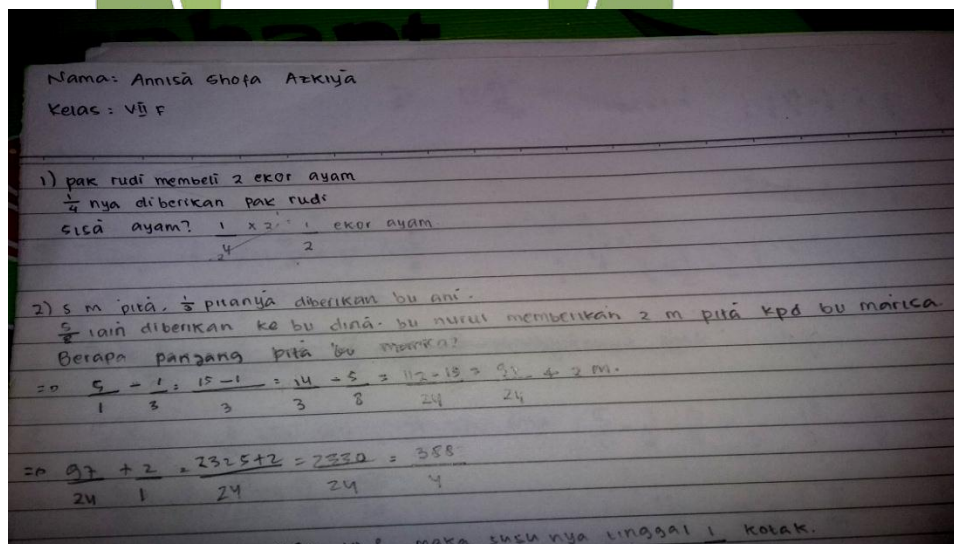 Nama: Annisa Shofa Azkiya
Kelas: VII F
1) pak rudi membeli 2 ekor ayam
1/4 nya diberikan pak rudi
sisa ayam? 1/4 x 2 = 1/2 ekor ayam
2) 5 m pita, 1/3 pitanya diberikan bu ani.
5/8 lain diberikan ke bu dina. bu nurul memberikan 2 m pita kpd bu marica.
Berapa panjang pita bu
=> 5/1 - 1/3 = 15-1/3 = 14/3 - 5/8 = 112-15/24 = /24 + 2 m.
=> 97/24 + 2/1 = 2325+2/24 = 2330/24 = 388/4
maka susu nya tinggal 1 kotak.